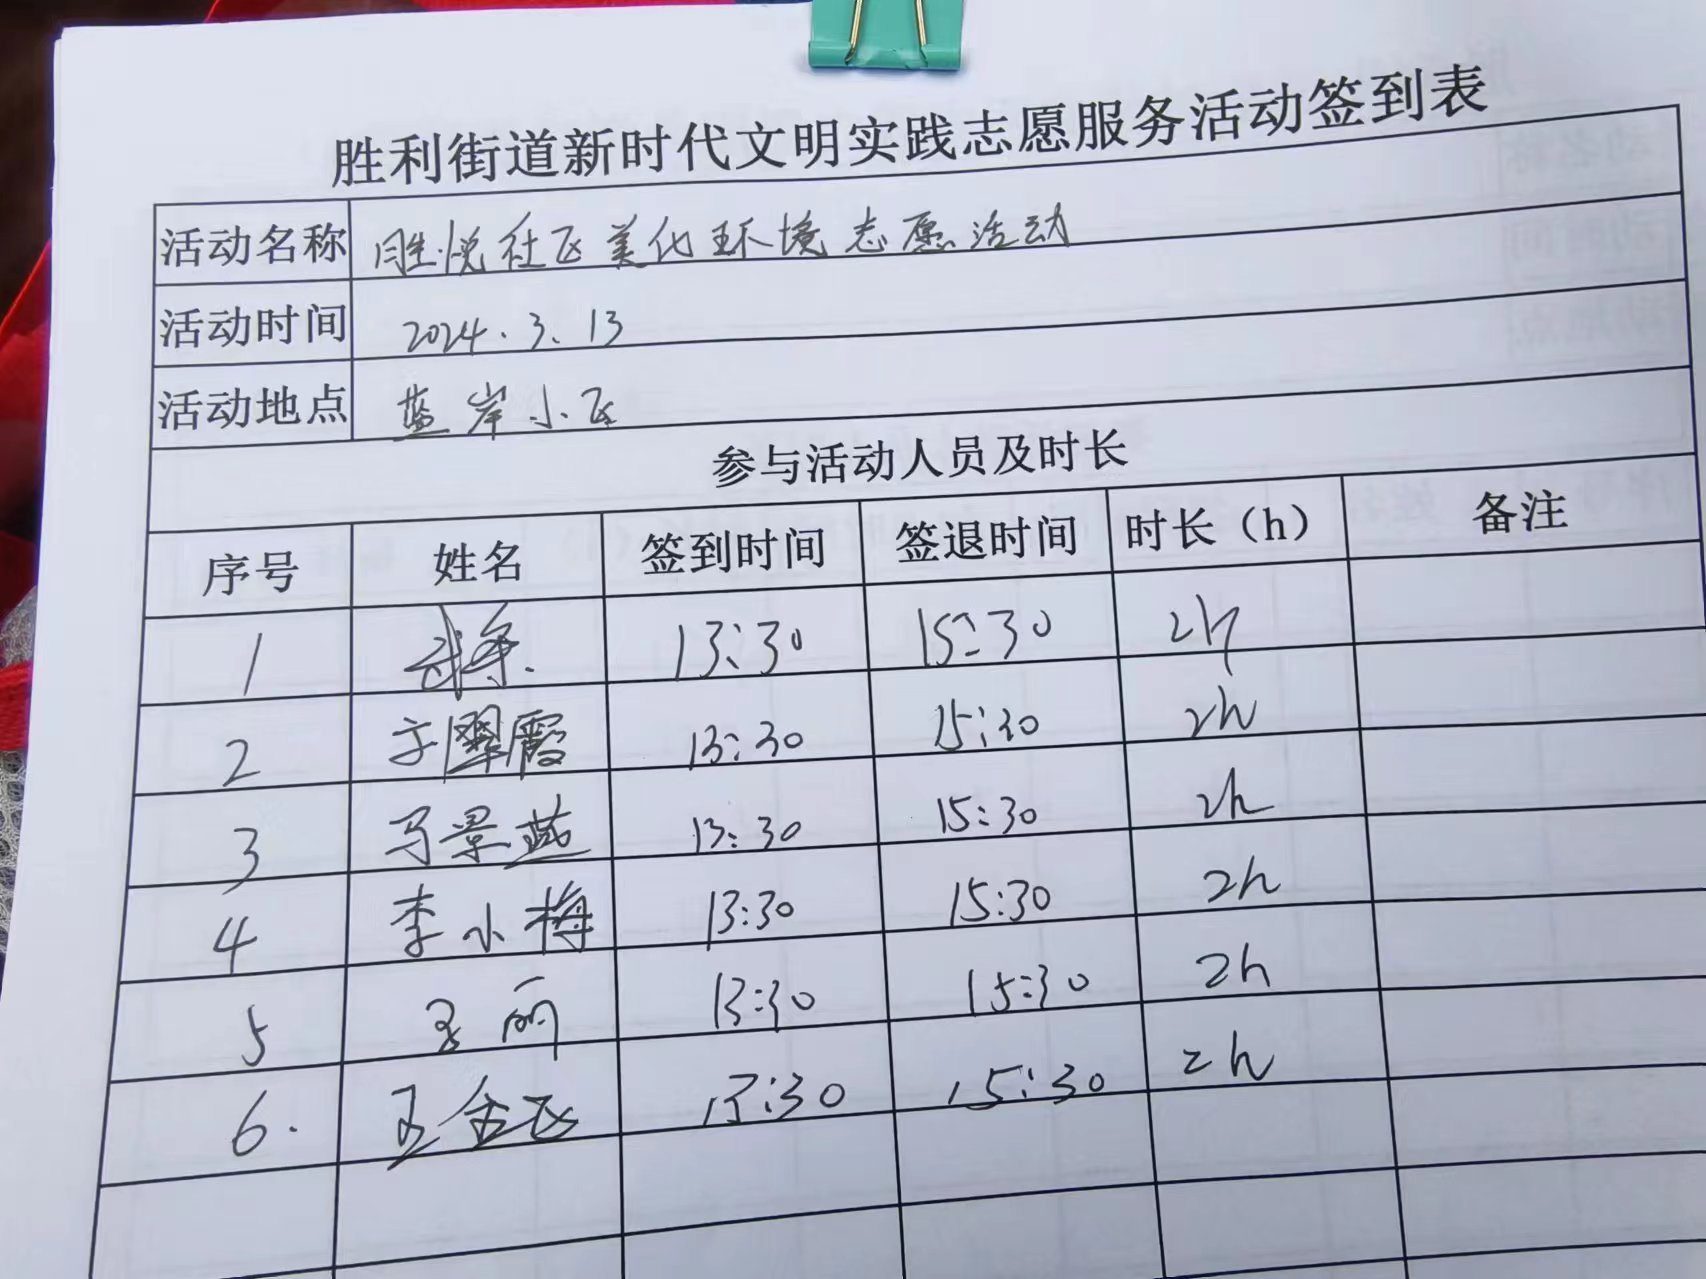 胜利街道新时代文明实践志愿服务活动签到表
活动名称 胜悦社区美化环境志愿活动
活动时间 2024.3.13
活动地点 蓝岸小区
参与活动人员及时长
序号 姓名 签到时间 签退时间 时长（h） 备注
1 13:30 15:30 2h
2 霞 13:30 15:30 2h
3 马景燕 13:30 15:30 2h
4 李小梅 13:30 15:30 2h
5 王丽 13:30 15:30 2h
6. 王 13:30 15:30 2h